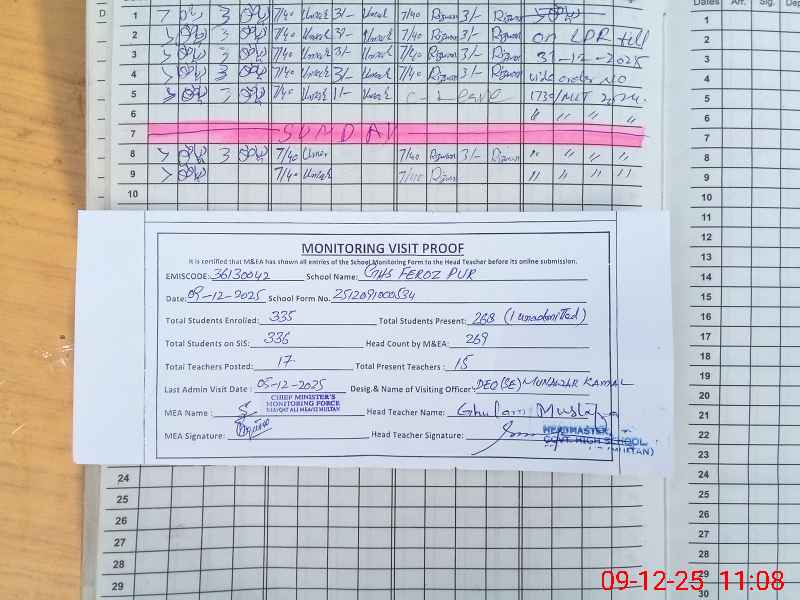 Dates Arr. Sig. Dep
1 7/40 Umer 3/- Umer 7/40 Rizwan 3/- Rizwan
2 7/40 Umer 3/- Umer 7/40 Rizwan 3/- Rizwan on LPR till
3 7/40 Umer 3/- Umer 7/40 Rizwan 3/- Rizwan 31-12-2025
4 7/40 Umer 3/- Umer 7/40 Rizwan 3/- Rizwan vide order No
5 7/40 Umer 1/- Umer C-Leave
6 " " " "
7 SUNDAY
8 7/40 Umer 7/40 Rizwan 3/- Rizwan " " " "
9 7/40 Umer 7/40 Rizwan " " " "
10
MONITORING VISIT PROOF
It is certified that M&EA has shown all entries of the School Monitoring Form to the Head Teacher before its online submission.
EMISCODE: 36130042 School Name: GHS FEROZ PUR
Date: 09-12-2025 School Form No. 2512091000534
Total Students Enrolled: 335 Total Students Present: 268 (1 unadmitted)
Total Students on SIS: 336 Head Count by M&EA: 269
Total Teachers Posted: 17 Total Present Teachers : 15
Last Admin Visit Date : 05-12-2025 Desig.& Name of Visiting Officer: DEO(SE) MUNAZAR KAMAL
CHIEF MINISTER'S
MONITORING FORCE
LIAQAT ALI MEA
MULTAN
MEA Name : Head Teacher Name: Ghulam Mustafa
MEA Signature: Head Teacher Signature:
HEADMASTER
GOVT. HIGH SCHOOL
(MULTAN)
24
25
26
27
28
29
1
2
3
4
5
6
7
8
9
10
11
12
13
14
15
16
17
18
19
20
21
22
23
24
25
26
27
28
29
30
09-12-25 11:08